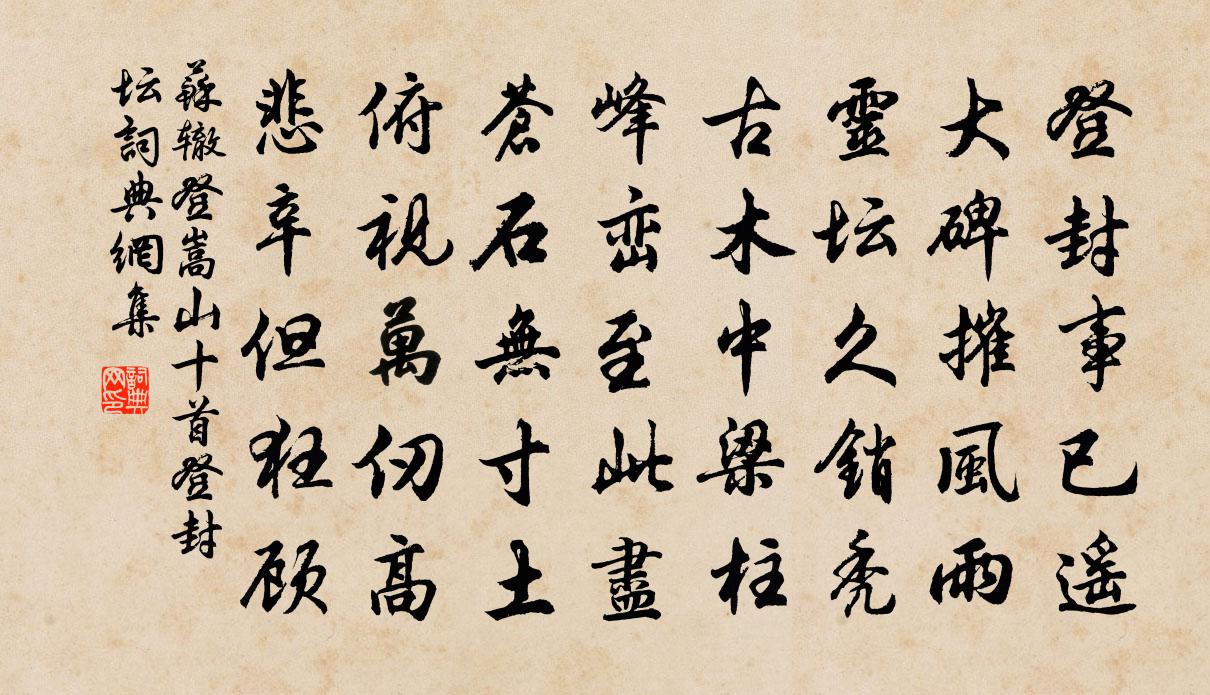 登封事已遥
大碑摧風雨
靈坛久銷秃
古木中梁柱
峰峦至此盡
蒼石無寸土
俯視萬仞高
悲辛但狂顾
蘇辙登嵩山十首登封
坛詞典網集
詞典
网印